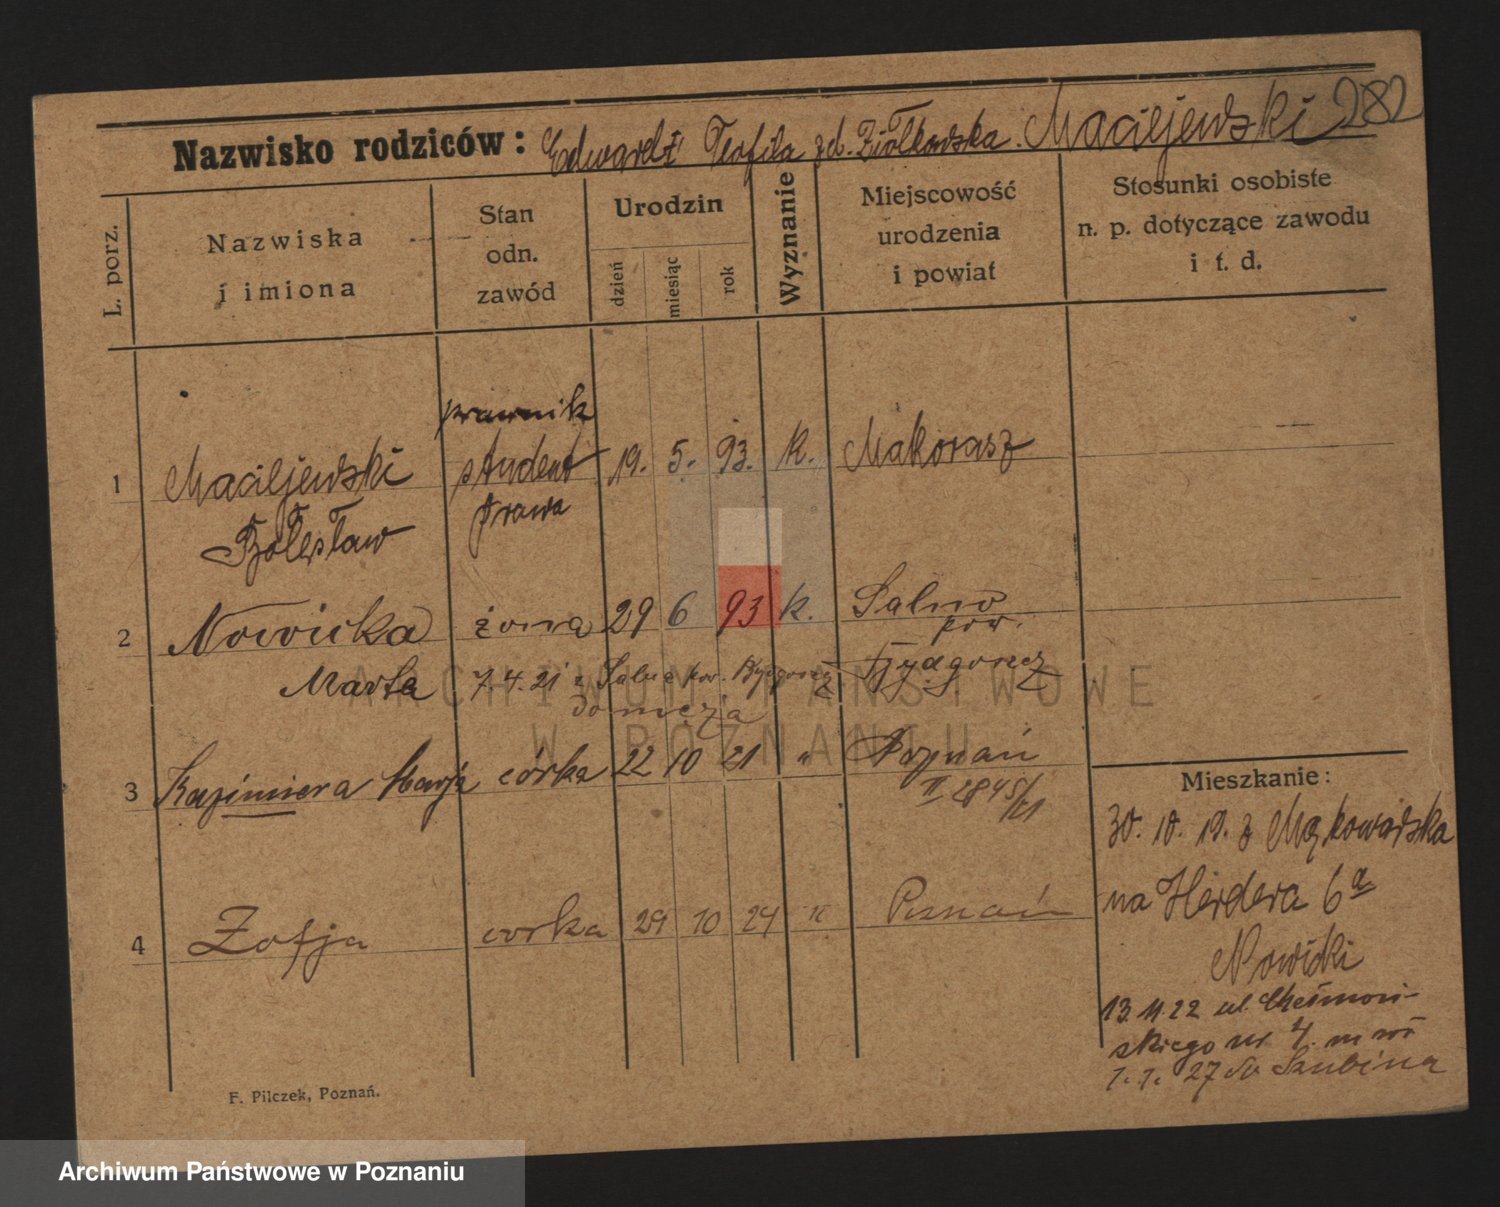 282
Nazwisko rodziców: Edward i Teofila zd. Ziółkowska. Maciejewski
L. porz.
Nazwiska i imiona
Stan odn. zawód
Urodzin
dzień
miesiąc
rok
Wyznanie
Miejscowość urodzenia i powiat
Stosunki osobiste n. p. dotyczące zawodu i t. d.
prawnik
1 Maciejewski student 19. 5. 93. k.
Bolesław prawa
2 Nowicka żona 29 6 93 k. Salno
pow.
Marta 7.4.21 z Salna pow. Bydgoszcz Bydgoszcz
do męża
3 Kazimiera Marja córka 22 10 21 " Poznań
II 2845/21
4 Zofja córka 29 10 24 k Poznań
Mieszkanie:
30. 10. 19. z
na Herdera 6a
Nowicki
13.11.22 ul.
skiego nr. 4. m
1. 7. 27 do Szubina
F. Pilczek, Poznań.
ARCHIWUM PAŃSTWOWE
W POZNANIU
Archiwum Państwowe w Poznaniu